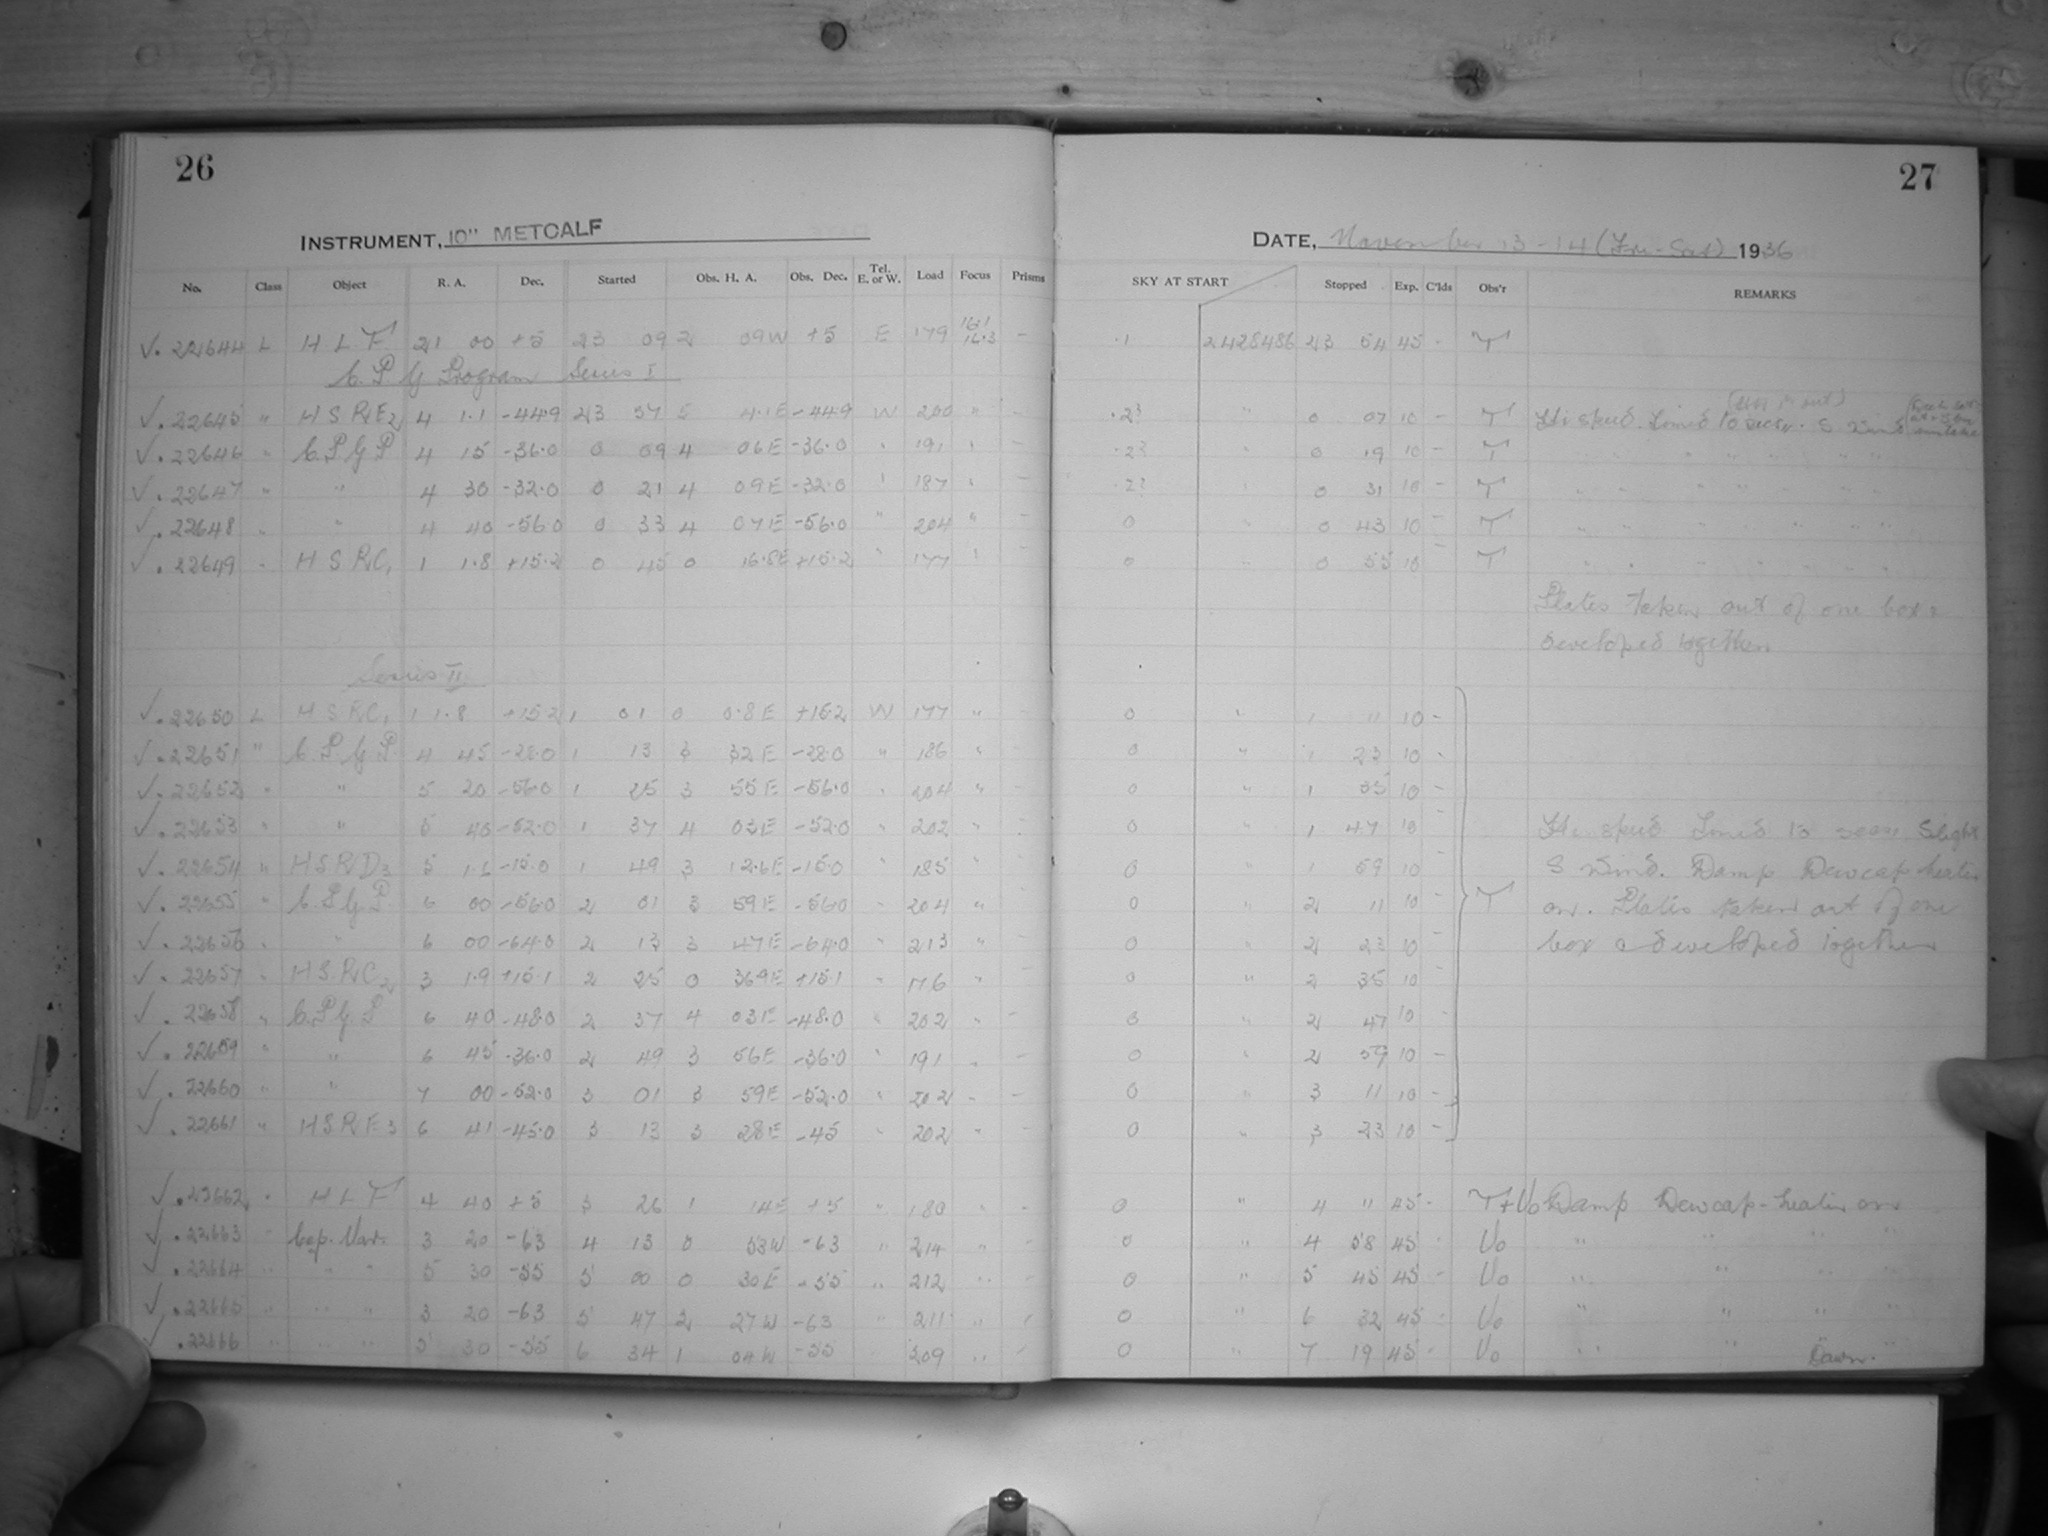 26
INSTRUMENT, 10" METCALF
No. Class Object R. A. Dec. Started Obs. H. A. Obs. Dec. Tel. E. or W. Load Focus Prisms
√ . 22644 L H L F 21 00 +5 23 09 2 09 W +5 E 179 16.1 16.3 –
C. P G Program Series I
√ . 22645 " H S R E2 4 1.1 -44.9 23 57 5 4.1 E -44.9 W 200 " –
√ . 22646 " C. P G P 4 15 -36.0 0 09 4 06 E -36.0 " 191 " –
√ . 22647 " " 4 30 -32.0 0 21 4 09 E -32.0 " 187 " –
√ . 22648 " " 4 40 -56.0 0 33 4 07 E -56.0 " 204 " –
√ . 22649 " H S R C1 1 1.8 +15.2 0 45 0 16.8 E +15.2 " 177 " –
Series II
√ . 22650 L H S R C1 1 1.8 +15.2 1 01 0 0.8 E +15.2 W 177 " –
√ . 22651 " C. P. G P. 4 45 -28.0 1 13 3 32 E -28.0 " 186 " –
√ . 22652 " " 5 20 -56.0 1 25 3 55 E -56.0 " 204 " –
√ . 22653 " " 5 40 -52.0 1 37 4 03 E -52.0 " 202 " –
√ . 22654 " H S R D3 5 1.6 -15.0 1 49 3 12.6 E -15.0 " 185 " –
√ . 22655 " C P G P. 6 00 -56.0 2 01 3 59 E -56.0 " 204 " –
√ . 22656 " " 6 00 -64.0 2 13 3 47 E -64.0 " 213 " –
√ . 22657 " H S. R C2 3 1.9 +15.1 2 25 0 36.9 E +15.1 " 176 " –
√ . 22658 " C. P G. P 6 40 -48.0 2 37 4 03 E -48.0 " 202 " –
√ . 22659 " " 6 45 -36.0 2 49 3 56 E -36.0 " 191 " –
√ . 22660 " " 7 00 -52.0 3 01 3 59 E -52.0 " 202 " –
√ . 22661 " H S R E3 6 41 -45.0 3 13 3 28 E -45 " 202 " –
√ . 22662 " H L F 4 40 +5 3 26 1 14 E +5 " 180 " –
√ . 22663 " Cep. Var. 3 20 -63 4 13 0 53 W -63 " 214 " –
√ . 22664 " " " 5 30 -55 5 00 0 30 E -55 " 212 " –
√ . 22665 " " " 3 20 -63 5 47 2 27 W -63 " 211 " –
√ . 22666 " " " 5 30 -55 6 34 1 04 W -55 " 209 " –
27
DATE, November 13-14 (Fri-Sat) 1936
SKY AT START Stopped Exp. C'lds Obs'r REMARKS
.1 2428486 23 54 45 - T
.2? " 0 07 10 - T Hi speed. Timed 10 secs. S wind
.2? " 0 19 10 - T " " " " " "
.2? " 0 31 10 - T " " " " " "
0 " 0 43 10 - T " " " " " "
0 " 0 55 10 - T " " " " " "
Plates taken out of one box &
developed together
0 " 1 11 10 -
0 " 1 23 10 -
0 " 1 35 10 -
0 " 1 47 10 - Hi speed Timed 10 secs. Slight
0 " 1 59 10 - S Wind. Damp Dewcap heater
0 " 2 11 10 - T on. Plates taken out of one
0 " 2 23 10 - box & developed together
0 " 2 35 10 -
0 " 2 47 10 -
0 " 2 59 10 -
0 " 3 11 10 -
0 " 3 23 10 -
0 " 4 11 45 - T+Uo Damp Dewcap-heater on
0 " 4 58 45 - Uo " " " "
0 " 5 45 45 - Uo " " " "
0 " 6 32 45 - Uo " " " "
0 " 7 19 45 - Uo " " Dawn. "